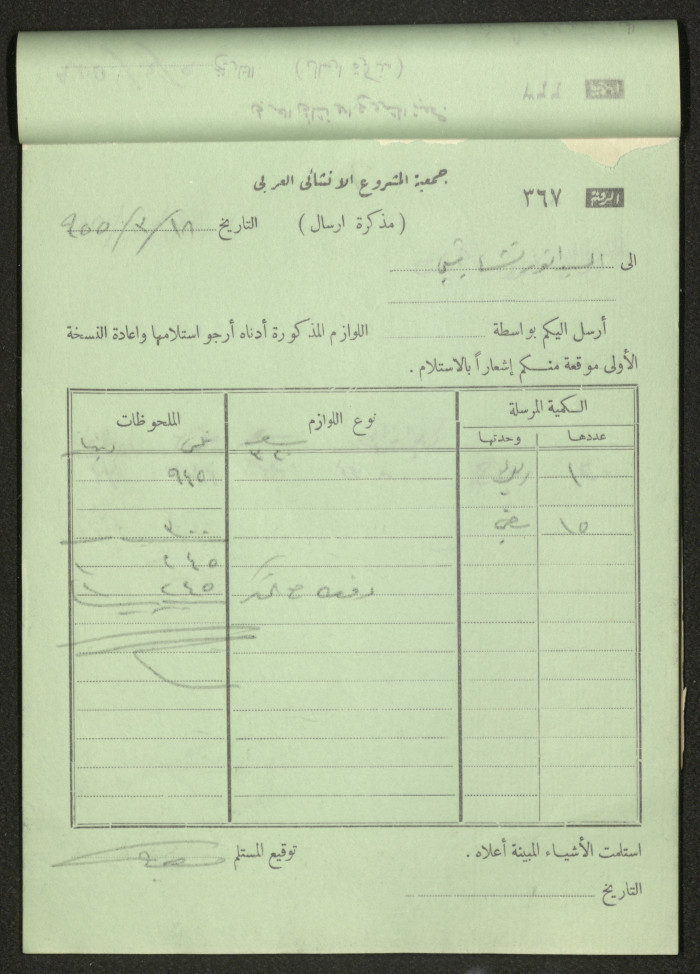 جمعية المشروع الانشائى العربى
الرقم ٣٦٧
( مذكرة ارسال )
التاريخ ١٨/٣/٩٥٥
الى السيد انور
أرسل اليكم بواسطة اللوازم المذكورة أدناه أرجو استلامها واعادة النسخة
الأولى موقعة منكم إشعاراً بالاستلام .
الكمية المرسلة نوع اللوازم الملحوظات
عددها وحدتها
١ ٩٤٥
١٥ ٣٠٠
٢٤٥ ١
دفعه ٢٤٥ ١
استلمت الأشياء المبينة أعلاه . توقيع المستلم
التاريخ